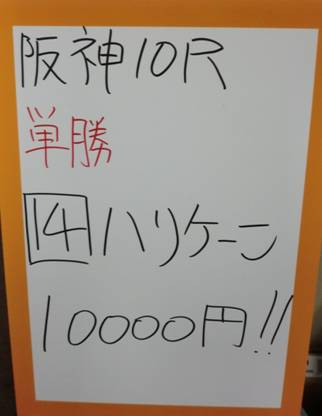 阪神10R
単勝
14ハリケーン
10000円!!